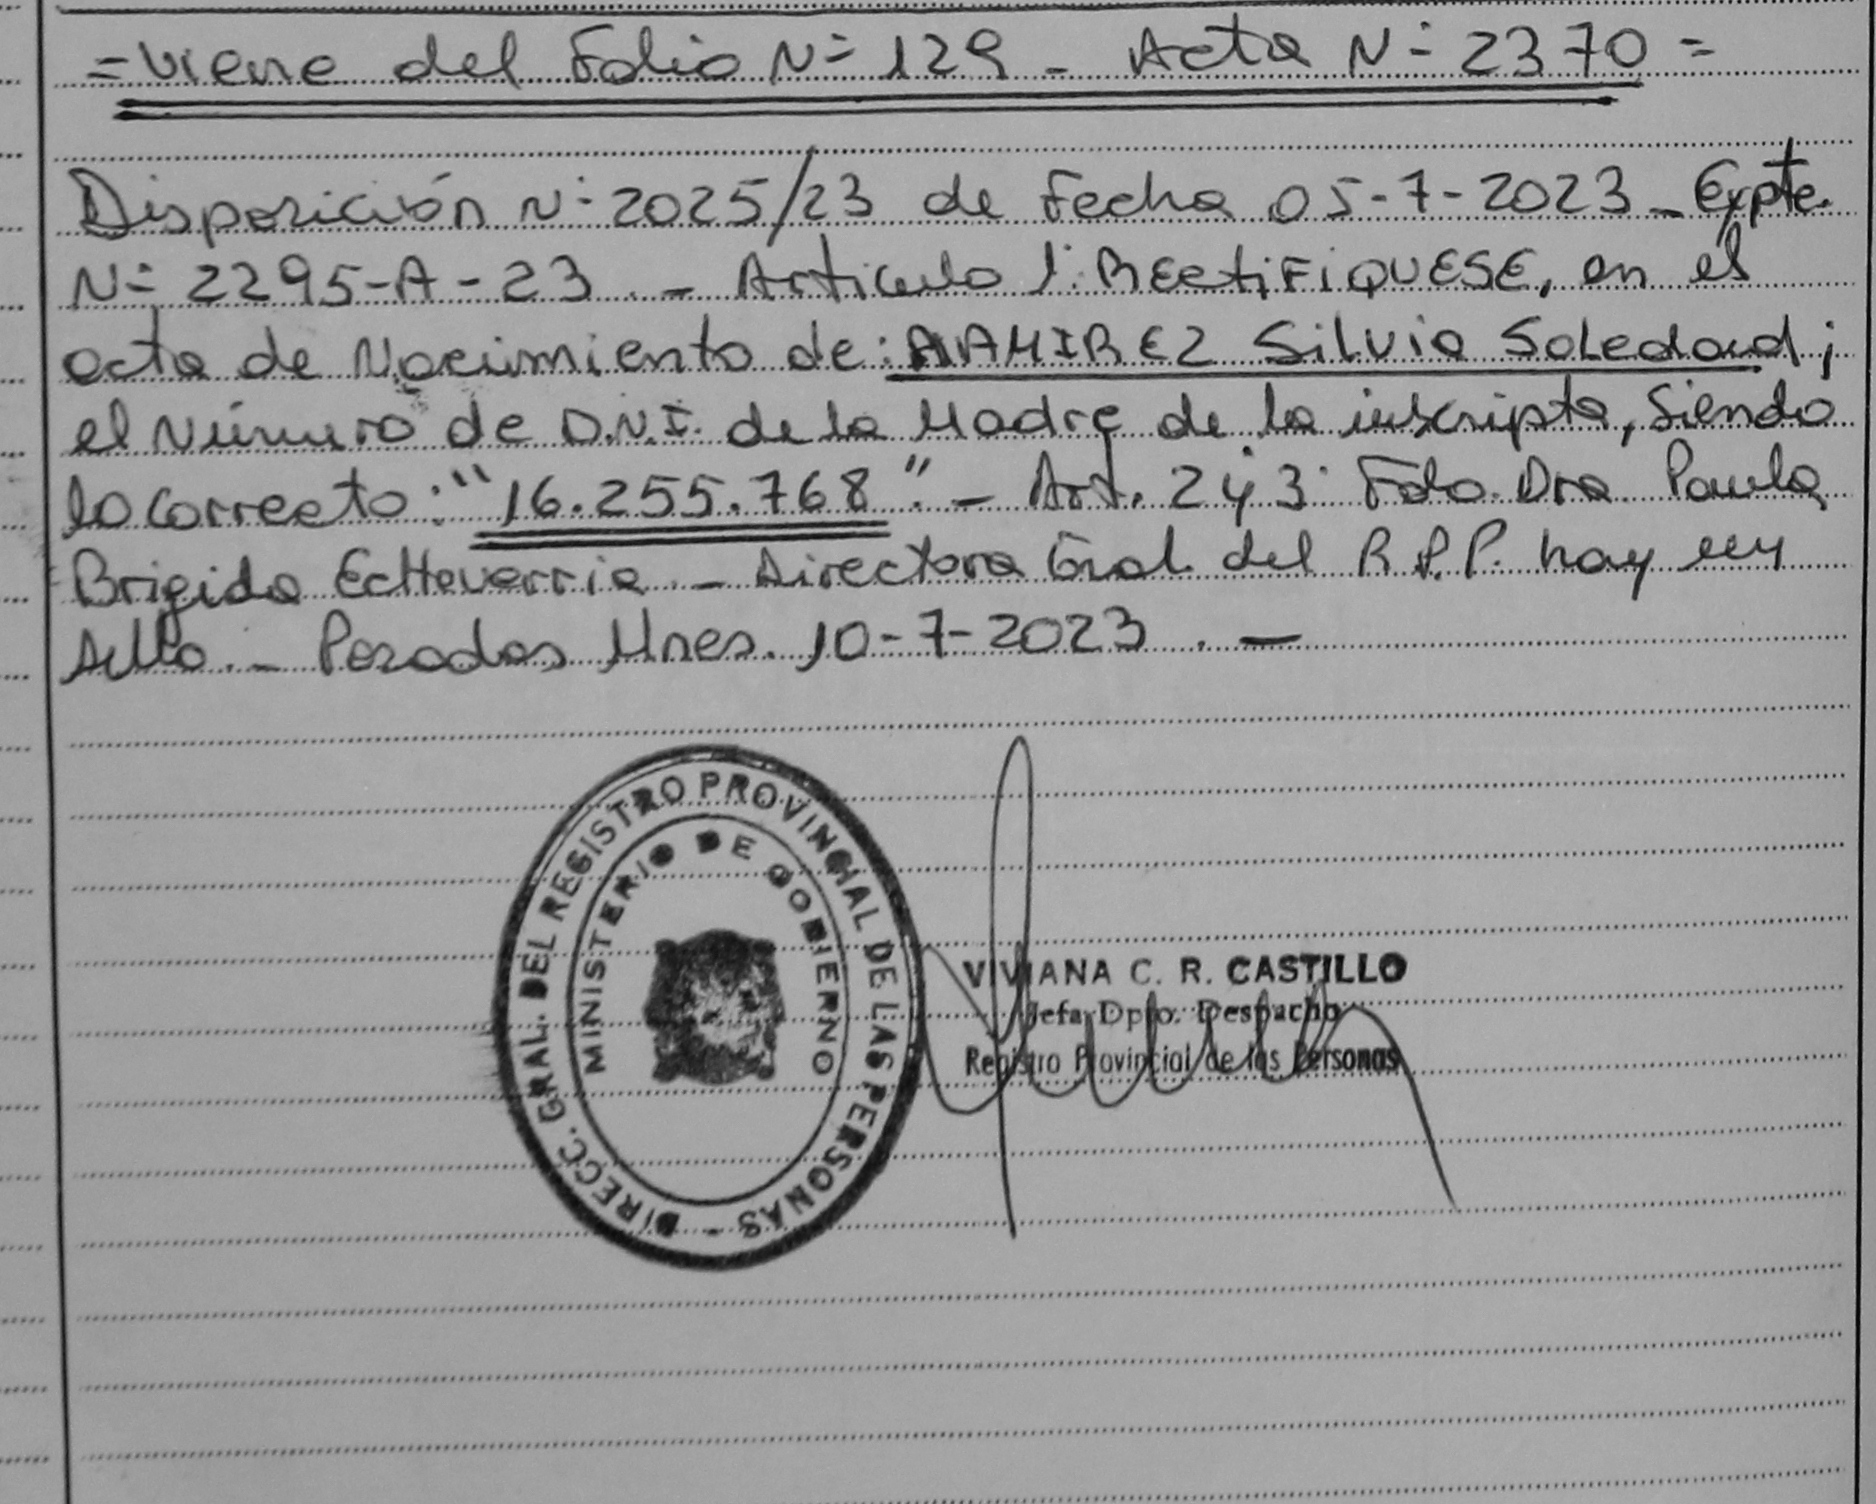 = Viene del Folio N= 129 - Acta N= 2370 =
Disposición N= 2025/23 de Fecha 05-7-2023 - Expte.
N= 2295-A-23. - Articulo 1: RECtiFIQUESE, en el
acta de Nacimiento de: RAMIREZ Silvia Soledad;
el Número de D.N.I. de la Madre de la inscripta, Siendo
lo correcto: "16.255.768". - Art. 2 y 3 Fdo. Dra Paula
Brigida Echeverria - Directora Gral. del R.P.P. hay un
sello. - Posadas Mnes. 10-7-2023. -
DIRECC. GRAL. DEL REGISTRO PROVINCIAL DE LAS PERSONAS -
MINISTERIO DE GOBIERNO
VIVIANA C. R. CASTILLO
Jefa Dpto. Despacho
Registro Provincial de las Personas